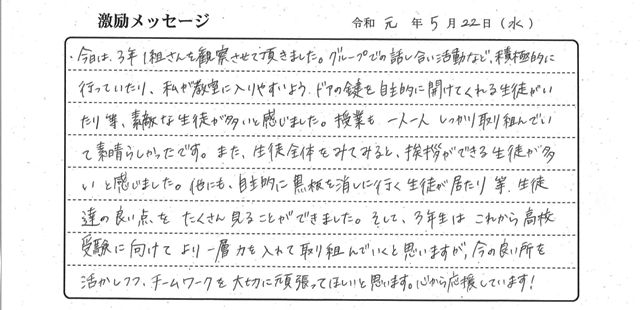 激励メッセージ 令和 元 年 5 月 22 日 (水)
・今日は、3年1組さんを観察させて頂きました。グループでの話し合い活動など、積極的に
行っていたり、私が教室に入りやすいよう、ドアの鍵を自主的に開けてくれる生徒がい
たり等、素敵な生徒が多いと感じました。授業も一人一人しっかり取り組んでい
て素晴らしかったです。また、生徒全体をみてみると、挨拶ができる生徒が多
いと感じました。他にも、自主的に黒板を消しに行く生徒が居たり等、生徒
達の良い点をたくさん見ることができました。そして、3年生はこれから高校
受験に向けてより一層力を入れて取り組んでいくと思いますが、今の良い所を
活かしつつ、チームワークを大切に頑張ってほしいと思います。心から応援しています!